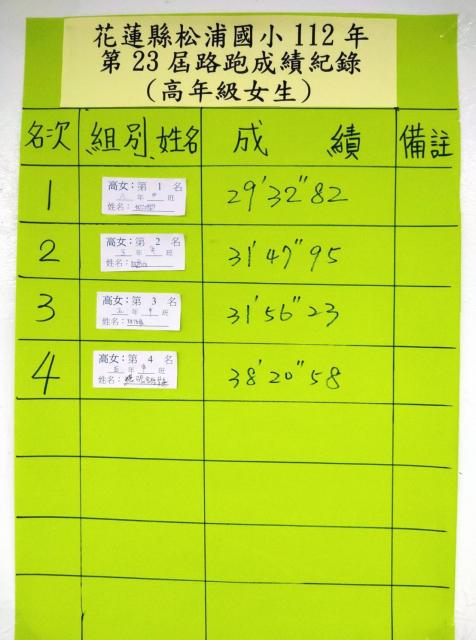 花蓮縣松浦國小112年
第23屆路跑成績紀錄
(高年級女生)
名次 組別、姓名 成績 備註
1 高女:第 1 名
年 甲 班
姓名:
29'32"82
2 高女:第 2 名
五 年 甲 班
姓名:
31'47"95
3 高女:第 3 名
五 年 甲 班
姓名:
31'56"23
4 高女:第 4 名
五 年 甲 班
姓名:
38'20"58